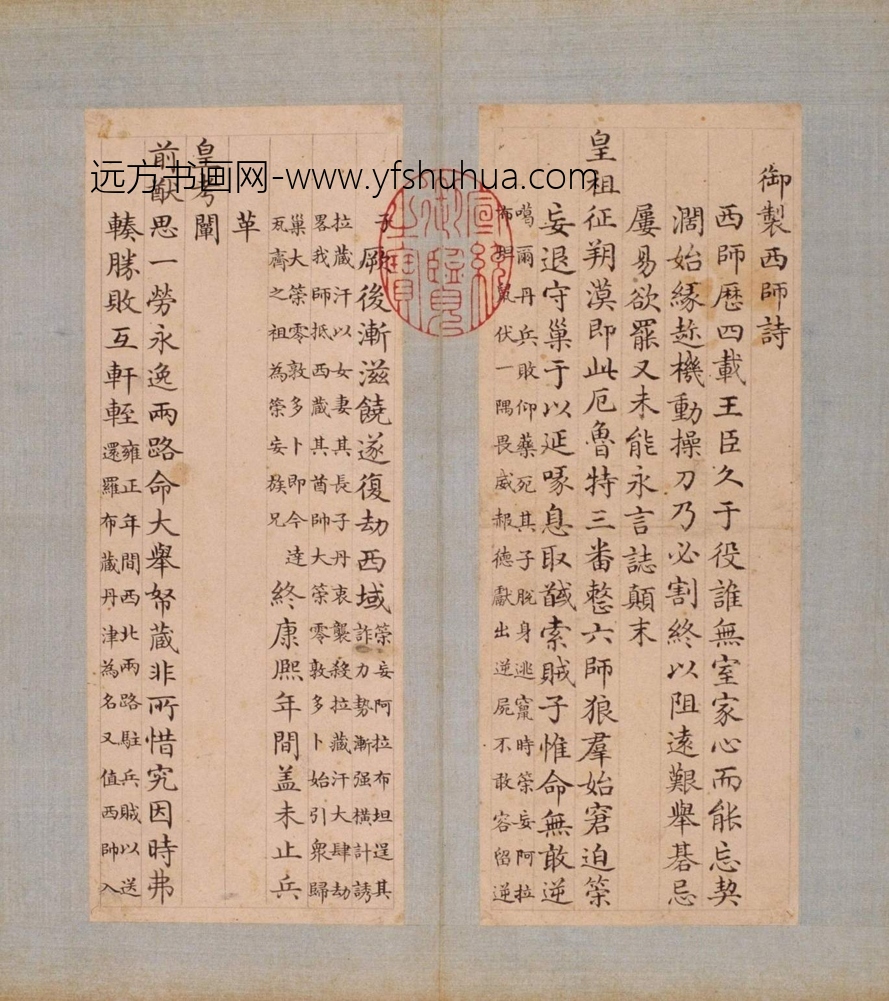 远方书画网-www.yfshuhua.com
御製西師詩
西師歷四載王臣久于役誰無室家心而能忘契
濶始緣趂機動操刀乃必割終以阻遠艱舉碁忌
屢易欲罷又未能永言誌顛末
皇祖征朔漠即此厄魯特三番整六師狼羣始窘迫策
妄退守巢于以延啄息取馘索賊子惟命無敢逆
噶爾丹兵敗仰藥死其子脫身逃竄時策妄阿拉
布坦鼠伏一隅畏威赧德獻出逆屍不敢容留逆
宣統御覽之寶
子厥後漸滋饒遂復劫西域策妄阿拉布坦逞其
詐力勢漸强橫計誘
拉藏汗以女妻其長子丹衷襲殺拉藏汗大肆劫
畧我師抵西藏其酋帥大策零敦多卜始引衆歸
巢大策零敦多卜即今達
瓦齊之祖為策妄族兄終康熙年間盖未止兵
革
皇考闡
前猷思一勞永逸兩路命大舉帑藏非所惜究因時弗
輳勝敗互軒輊雍正年間西北兩路駐兵賊以送
還羅布藏丹津為名又值西帥入